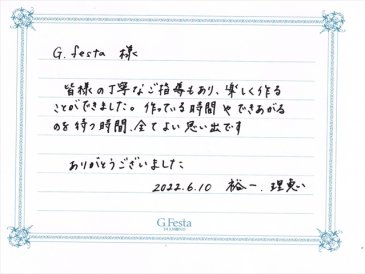 G. festa 様
皆様の丁寧なご指導もあり、楽しく作る
ことができました。作っている時間やできあがる
のを待つ時間、全てよい思い出です
ありがとうございました
2022.6.10 裕一、理恵
G.Festa
DIAMOND